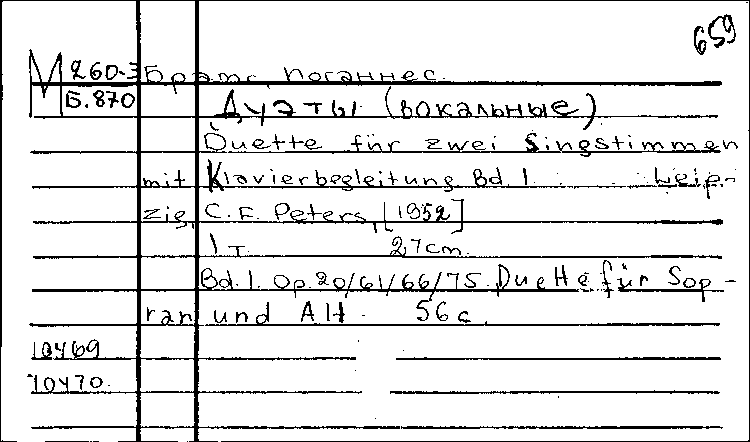 659
М 260-3 Брамс, Иоганнес.
Б.870 Дуэты (вокальные)
Duette für zwei Singstimmen
mit Klavierbegleitung Bd. 1. Leip-
zig, C. F. Peters, [1952]
1 т. 27 cm.
Bd. 1. Op. 20/61/66/75. Duette für Sop-
ran und Alt. 56 с.
10469
10470.